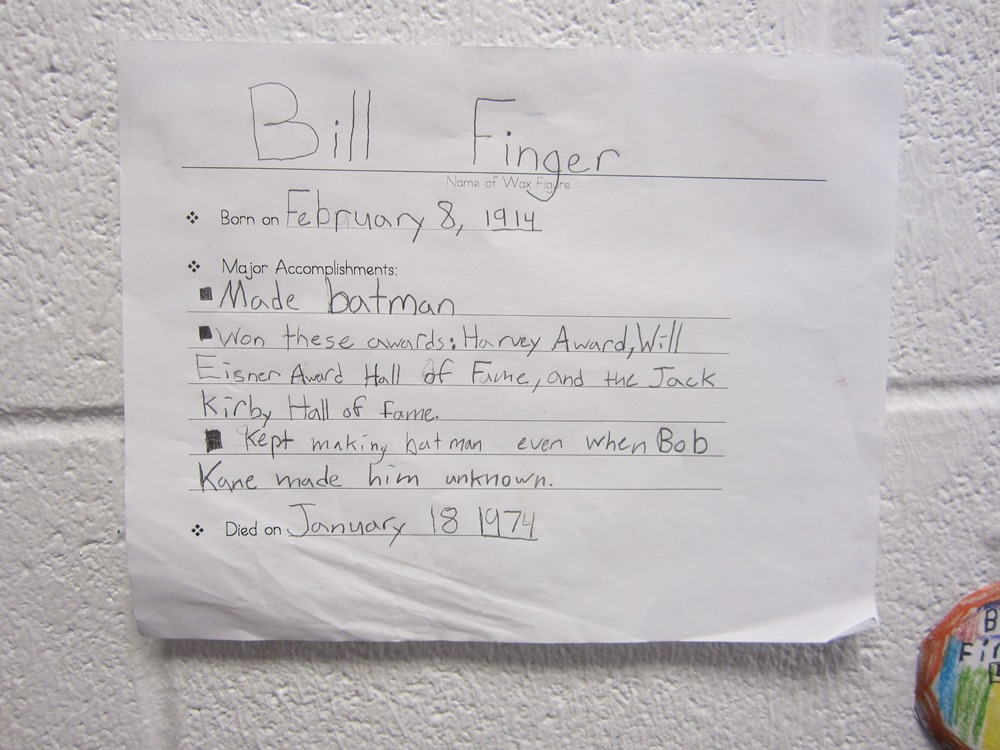 Bill Finger
Name of Wax Figure
❖ Born on February 8, 1914
❖ Major Accomplishments:
▪ Made batman
▪ Won these awards: Harvey Award, Will
Eisner Award Hall of Fame, and the Jack
Kirby Hall of fame.
▪ Kept making batman even when Bob
Kane made him unknown.
❖ Died on January 18 1974
B
Fin